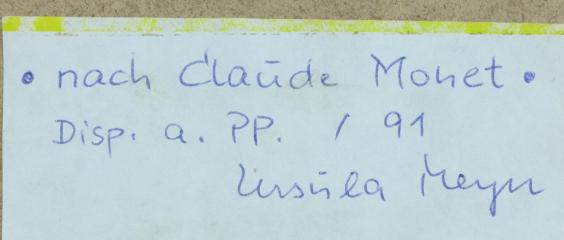 • nach Claude Monet •
Disp. a. PP. / 91
Ursula Meyer